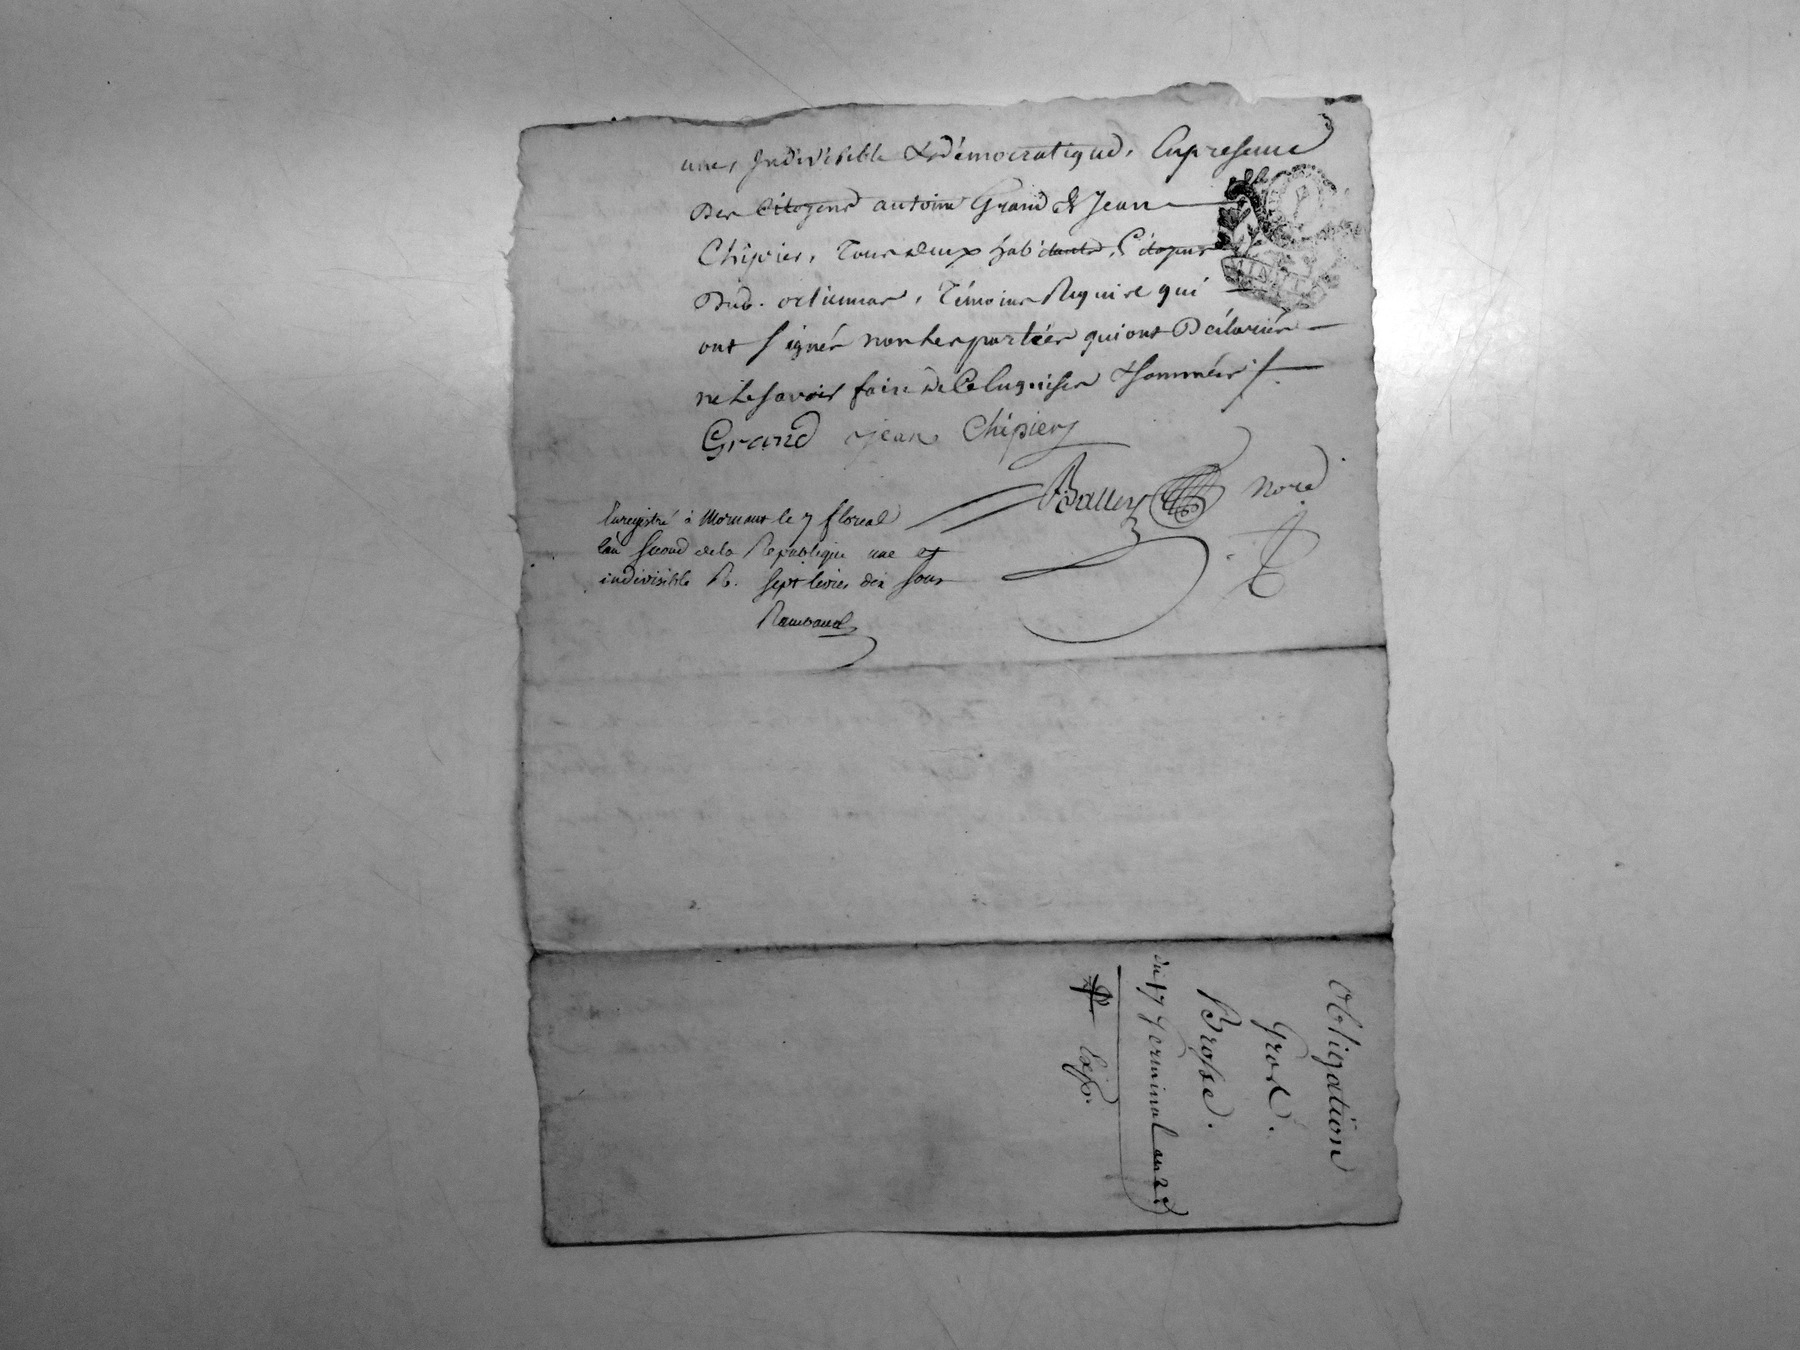 une, Indivisible & démocratique, En presence
Des Citoyens antoine Grand & Jean
Chipier, Tous deux habitants, Citoyens
Dud. ortiennas, Témoins Requis & qui
ont signés non les parties qui ont Déclarées
ne le savoir faire de Ce Enquises & sommées ./.
Grand Jean Chipier
Balley Nore
Enregistré à Mornant le 7 floreal
lan second de la Republique une et
indivisible R. sept livres dix sous
Rambaud
MINUTE
Obligation
Grod.
Brosse.
du 17 Germinal an 2d
Exp.